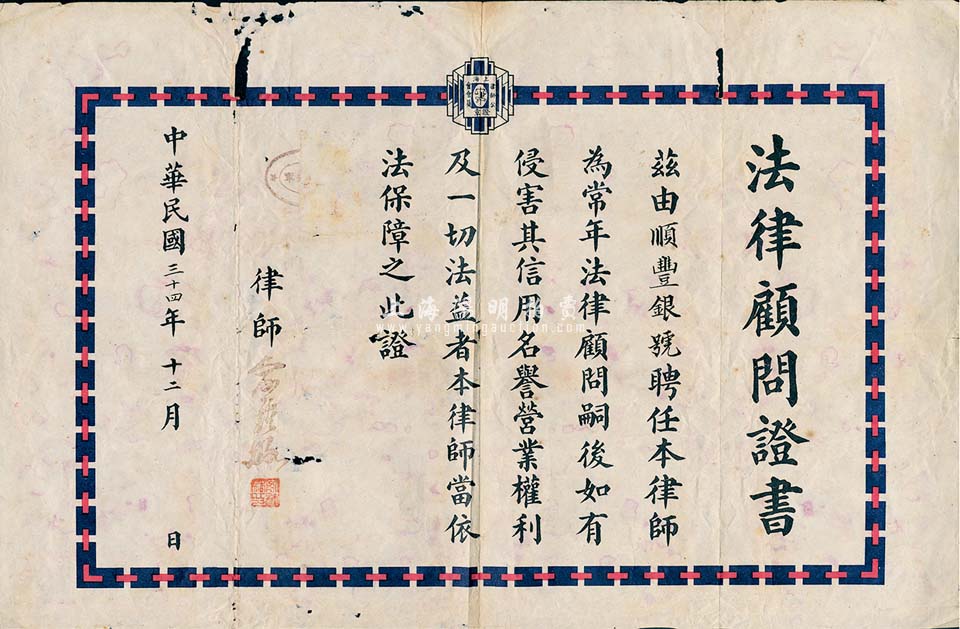 法律顧問證書
茲由順豐銀號聘任本律師
為常年法律顧問嗣後如有
侵害其信用名譽營業權利
及一切法益者本律師當依
法保障之此證
律師
中華民國三十四年十二月 日
上海
www.yangmingauction.com